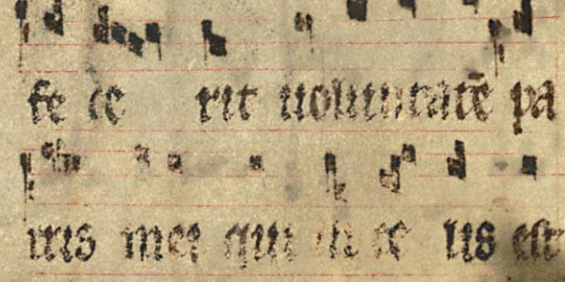 fe ce rit uoluntatē pa
tris mei qui in ce lis est